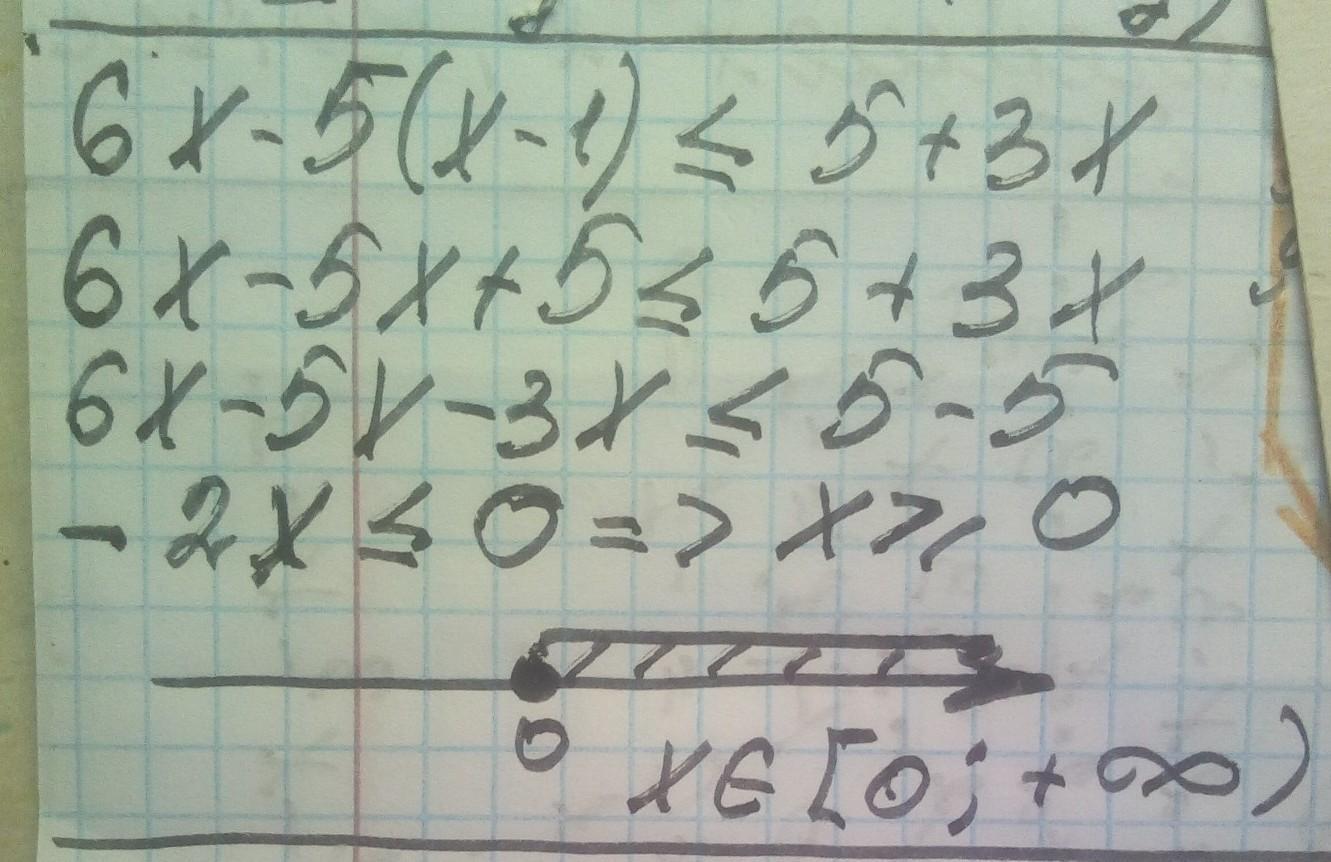 6x-5(x-1) ≤ 5+3x
6x-5x+5 ≤ 5+3x
6x-5x-3x ≤ 5-5
-2x ≤ 0 => x ⩾ 0
0
x∈[0;+∞)